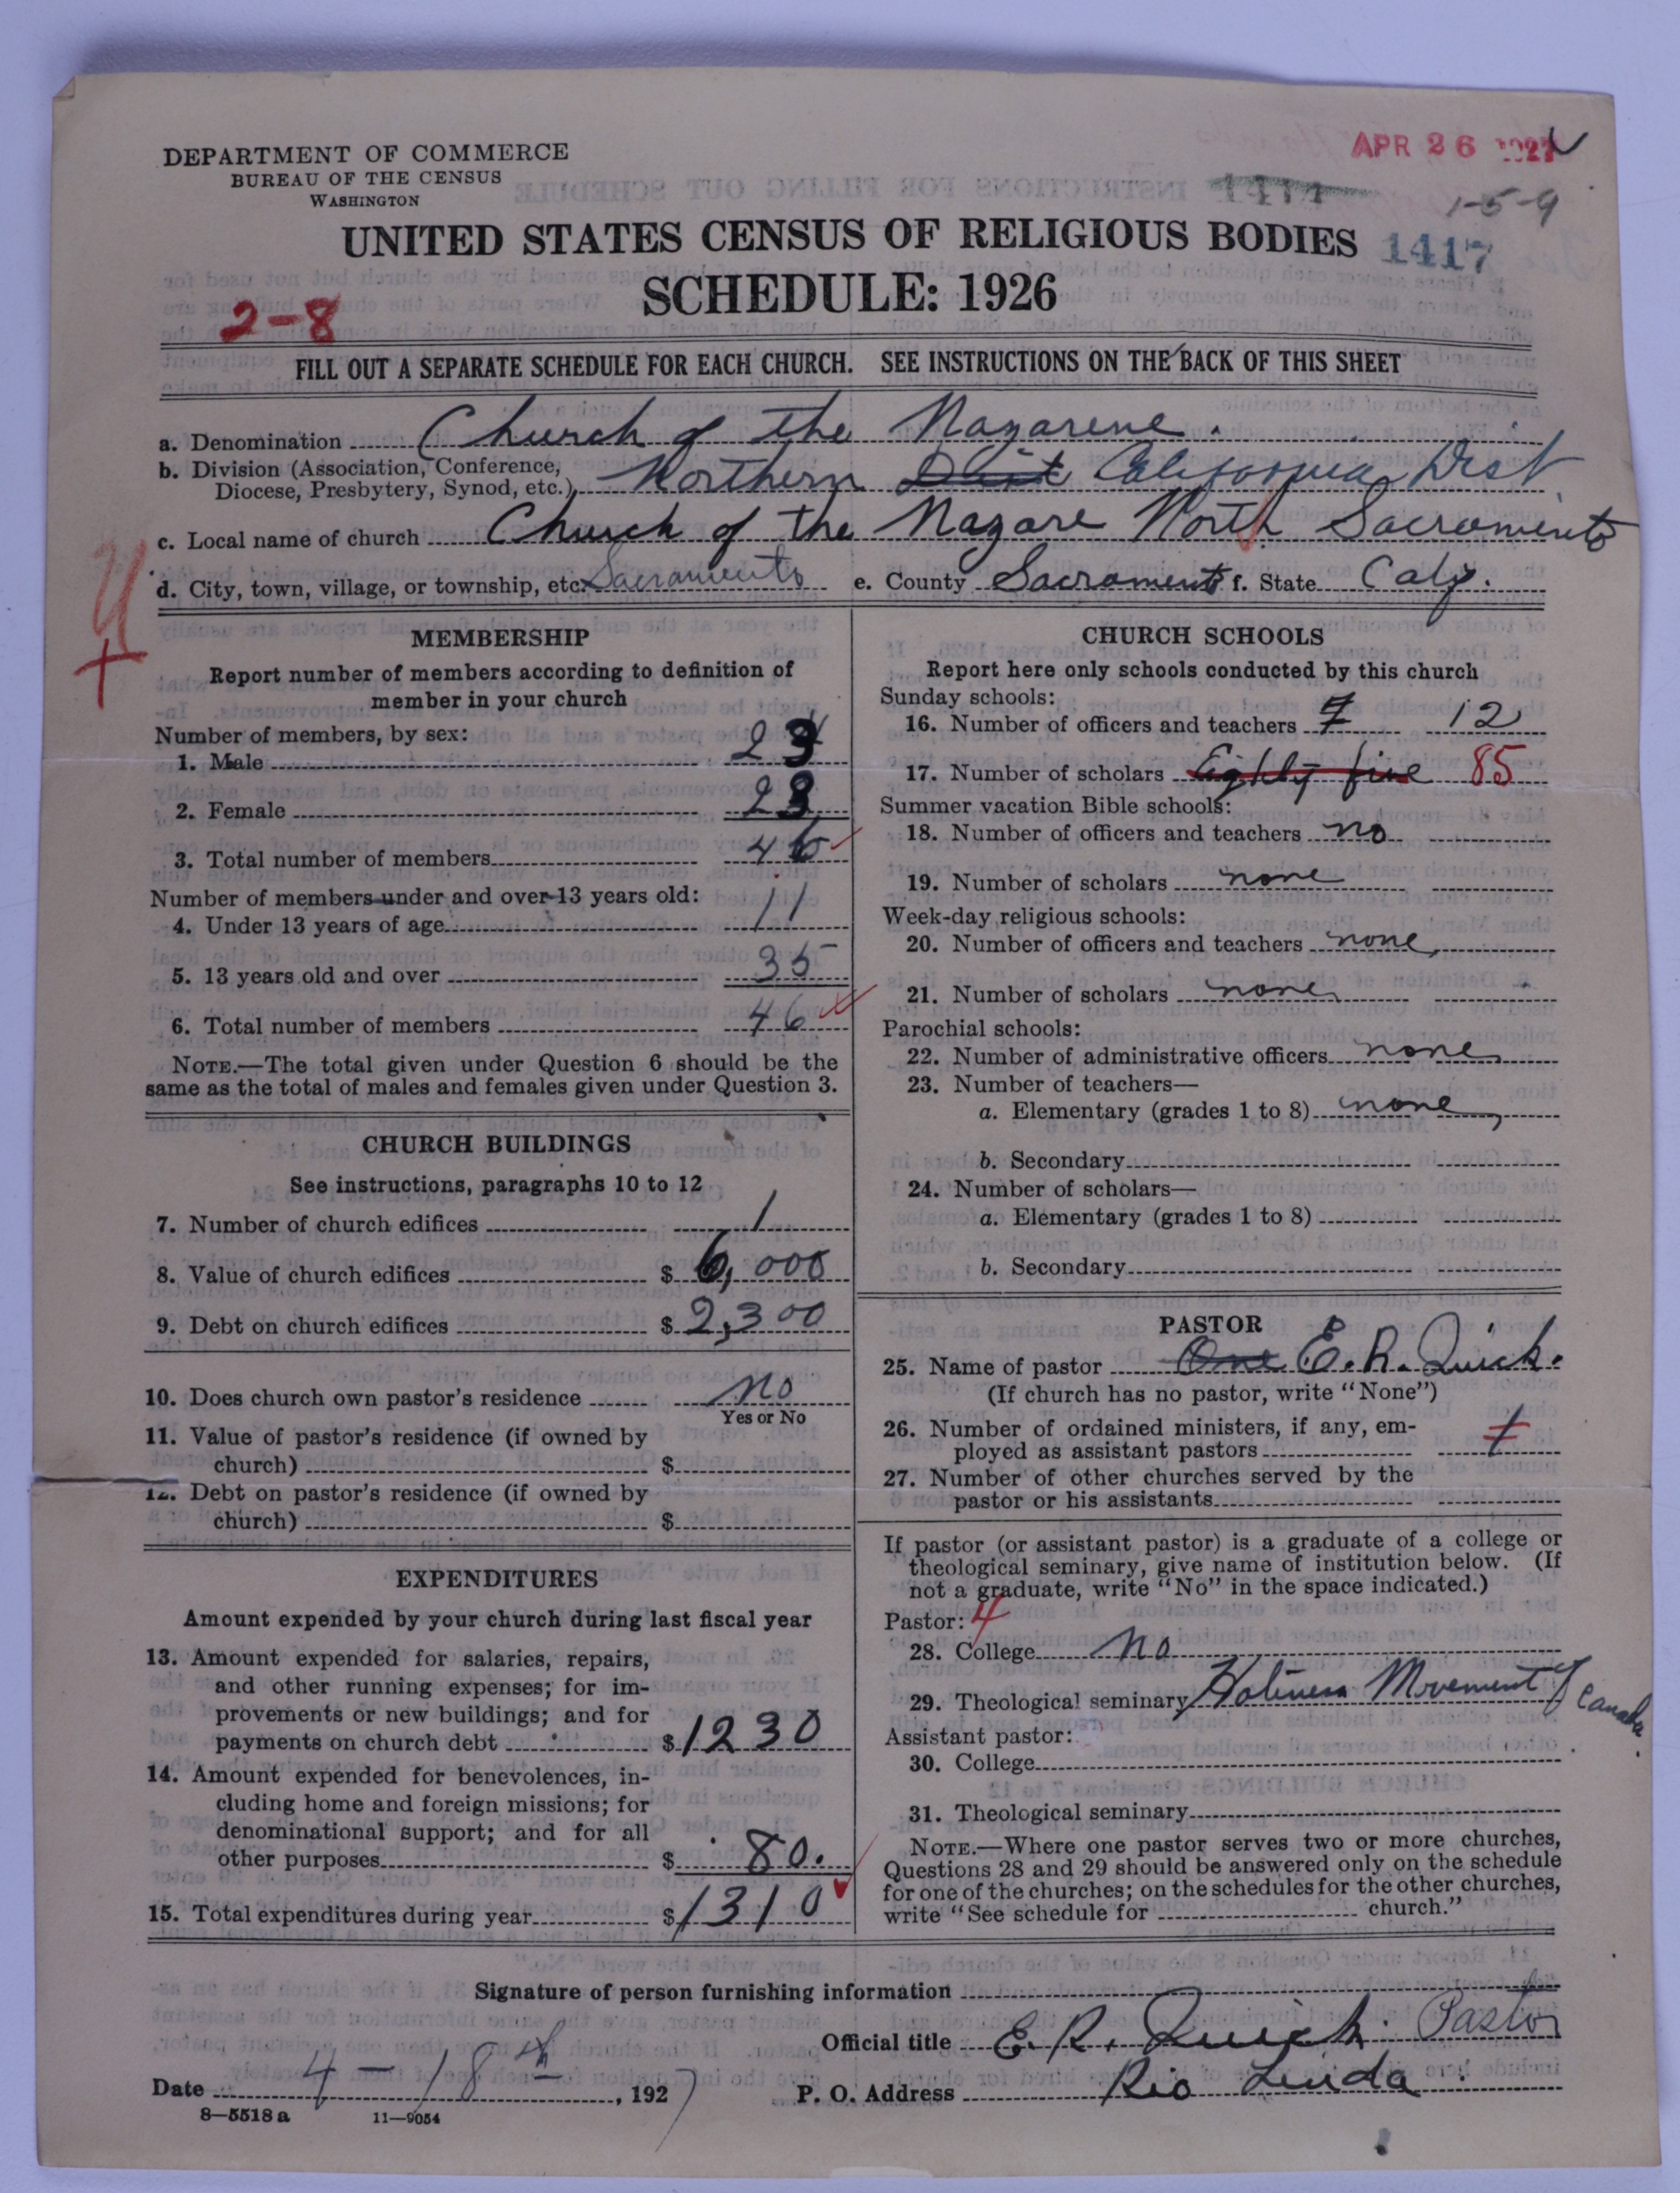 DEPARTMENT OF COMMERCE
BUREAU OF THE CENSUS
WASHINGTON
APR 26 1927
1414
1-5-9
UNITED STATES CENSUS OF RELIGIOUS BODIES 1417
SCHEDULE: 1926
2-8
FILL OUT A SEPARATE SCHEDULE FOR EACH CHURCH. SEE INSTRUCTIONS ON THE BACK OF THIS SHEET
a. Denomination Church of the Nazarene.
b. Division (Association, Conference, Diocese, Presbytery, Synod, etc.) Northern Dist California Dist
c. Local name of church Church of the Nazare North Sacramento
d. City, town, village, or township, etc. Sacramento e. County Sacramento f. State Calif.
MEMBERSHIP
Report number of members according to definition of
member in your church
Number of members, by sex:
1. Male 23
2. Female 23
3. Total number of members 46
Number of members under and over 13 years old:
4. Under 13 years of age 11
5. 13 years old and over 35
6. Total number of members 46
NOTE.—The total given under Question 6 should be the
same as the total of males and females given under Question 3.
CHURCH BUILDINGS
See instructions, paragraphs 10 to 12
7. Number of church edifices 1
8. Value of church edifices $ 6,000
9. Debt on church edifices $ 2,300
10. Does church own pastor's residence no
Yes or No
11. Value of pastor's residence (if owned by
church) $
12. Debt on pastor's residence (if owned by
church) $
EXPENDITURES
Amount expended by your church during last fiscal year
13. Amount expended for salaries, repairs,
and other running expenses; for im-
provements or new buildings; and for
payments on church debt $ 1230
14. Amount expended for benevolences, in-
cluding home and foreign missions; for
denominational support; and for all
other purposes $ 80.
15. Total expenditures during year $ 1310
CHURCH SCHOOLS
Report here only schools conducted by this church
Sunday schools:
16. Number of officers and teachers 7 12
17. Number of scholars Eighty five 85
Summer vacation Bible schools:
18. Number of officers and teachers no
19. Number of scholars none
Week-day religious schools:
20. Number of officers and teachers none
21. Number of scholars none
Parochial schools:
22. Number of administrative officers none
23. Number of teachers—
a. Elementary (grades 1 to 8) none
b. Secondary
24. Number of scholars—
a. Elementary (grades 1 to 8)
b. Secondary
PASTOR
25. Name of pastor One E. R. Quick.
(If church has no pastor, write "None")
26. Number of ordained ministers, if any, em-
ployed as assistant pastors 1
27. Number of other churches served by the
pastor or his assistants
If pastor (or assistant pastor) is a graduate of a college or
theological seminary, give name of institution below. (If
not a graduate, write "No" in the space indicated.)
Pastor: 4
28. College no
29. Theological seminary Holiness Movement of Canada.
Assistant pastor:
30. College
31. Theological seminary
NOTE.—Where one pastor serves two or more churches,
Questions 28 and 29 should be answered only on the schedule
for one of the churches; on the schedules for the other churches,
write "See schedule for church."
Signature of person furnishing information
Official title E. R. Quick. Pastor
Date 4-18th, 1927 P. O. Address Rio Linda
8—5518a 11—9054